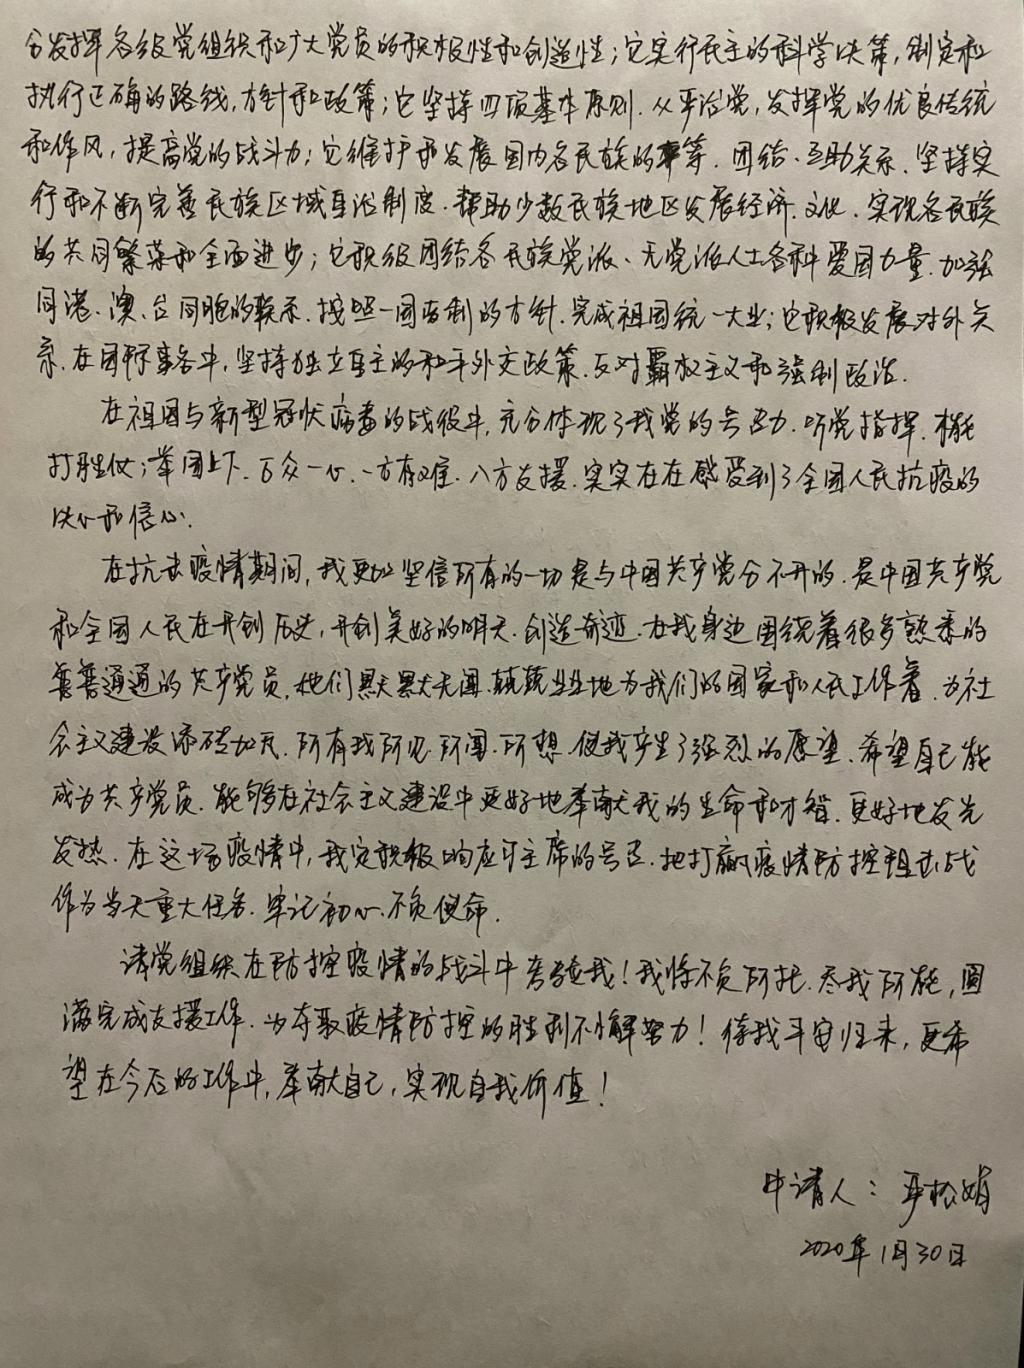 分发挥各级党组织和广大党员的积极性和创造性；它实行民主的科学决策，制定和
执行正确的路线，方针和政策；它坚持四项基本原则．从严治党，发挥党的优良传统
和作风，提高党的战斗力；它维护和发展国内各民族的平等．团结、互助关系、坚持实
行和不断完善民族区域自治制度．帮助少数民族地区发展经济．文化．实现各民族
的共同繁荣和全面进步；它积极团结各民族党派、无党派人士各种爱国力量．加强
同港、澳、台同胞的联系．按照一国两制的方针．完成祖国统一大业；它积极发展对外关
系．在国际事务中，坚持独立自主的和平外交政策．反对霸权主义和强制政治．
在祖国与新型冠状病毒的战役中，充分体现了我党的号召力．听党指挥．才能
打胜仗；举国上下．万众一心、一方有难．八方支援．实实在在感受到了全国人民抗疫的
决心和信心．
在抗击疫情期间，我更加坚信所有的一切是与中国共产党分不开的．是中国共产党
和全国人民在开创历史，开创美好的明天．创造奇迹．在我身边围绕着很多熟悉的
普普通通的共产党员，他们默默无闻．兢兢业业地为我们的国家和人民工作着．为社
会主义建设添砖加瓦．所有我所见．所闻．所想．使我产生了强烈的愿望、希望自己能
成为共产党员．能够在社会主义建设中更好地奉献我的生命和才智．更好地发光
发热．在这场疫情中，我定积极响应习主席的号召．把打赢疫情防控阻击战
作为当天重大任务．牢记初心．不负使命．
请党组织在防控疫情的战斗中考验我！我将不负所托．尽我所能，圆
满完成支援工作．为夺取疫情防控的胜利不懈努力！待我平安归来，更希
望在今后的工作中，奉献自己，实现自我价值！
申请人：严松娟
2020年1月30日